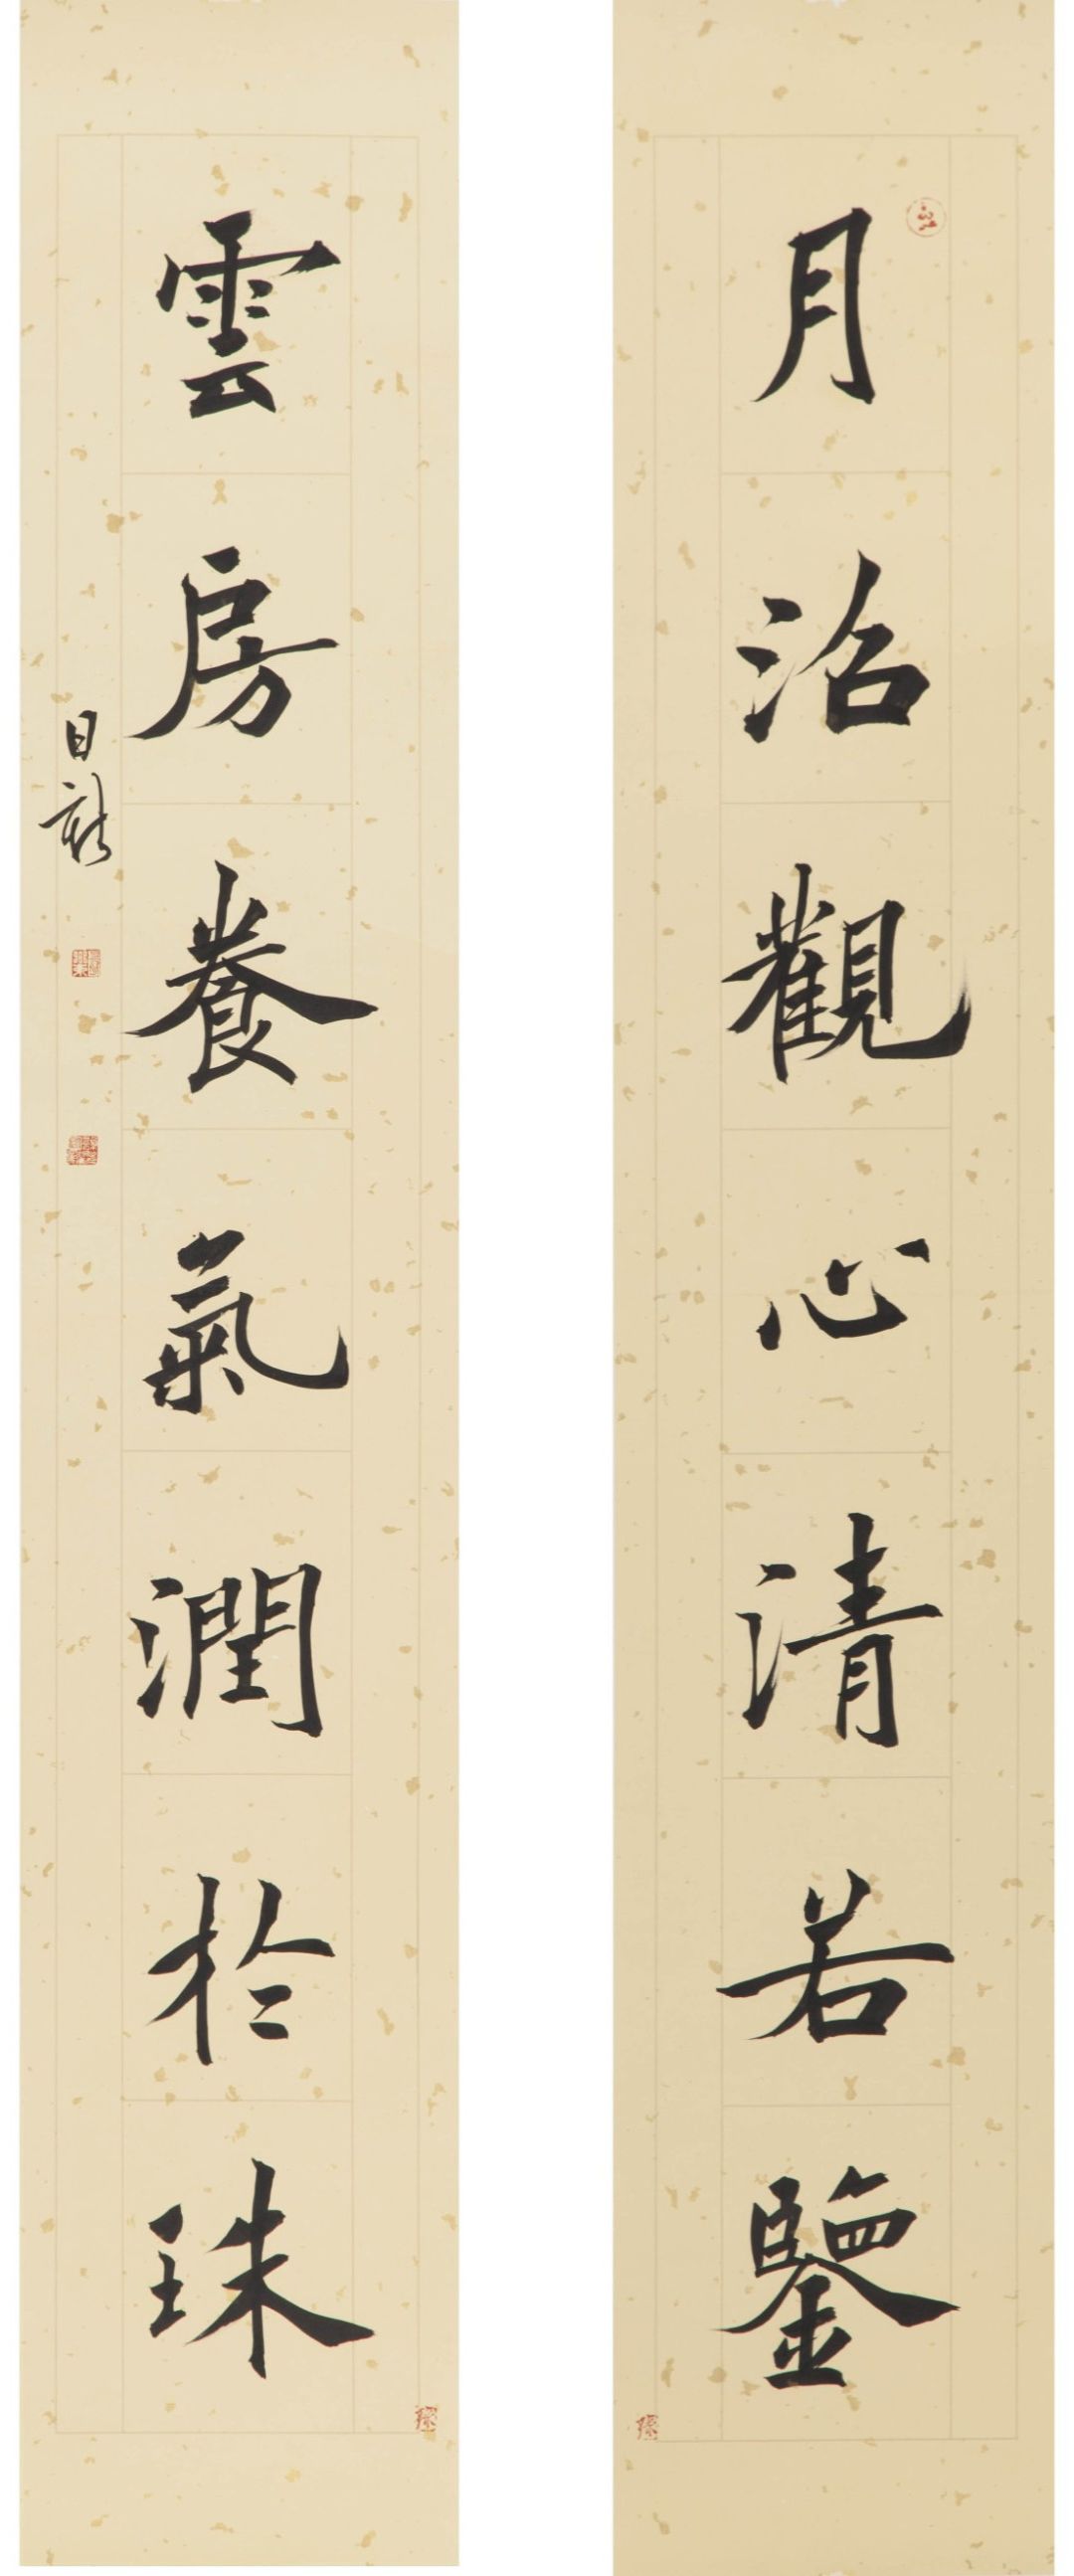 月沼觀心清若鑒
雲房養氣潤於珠
日新